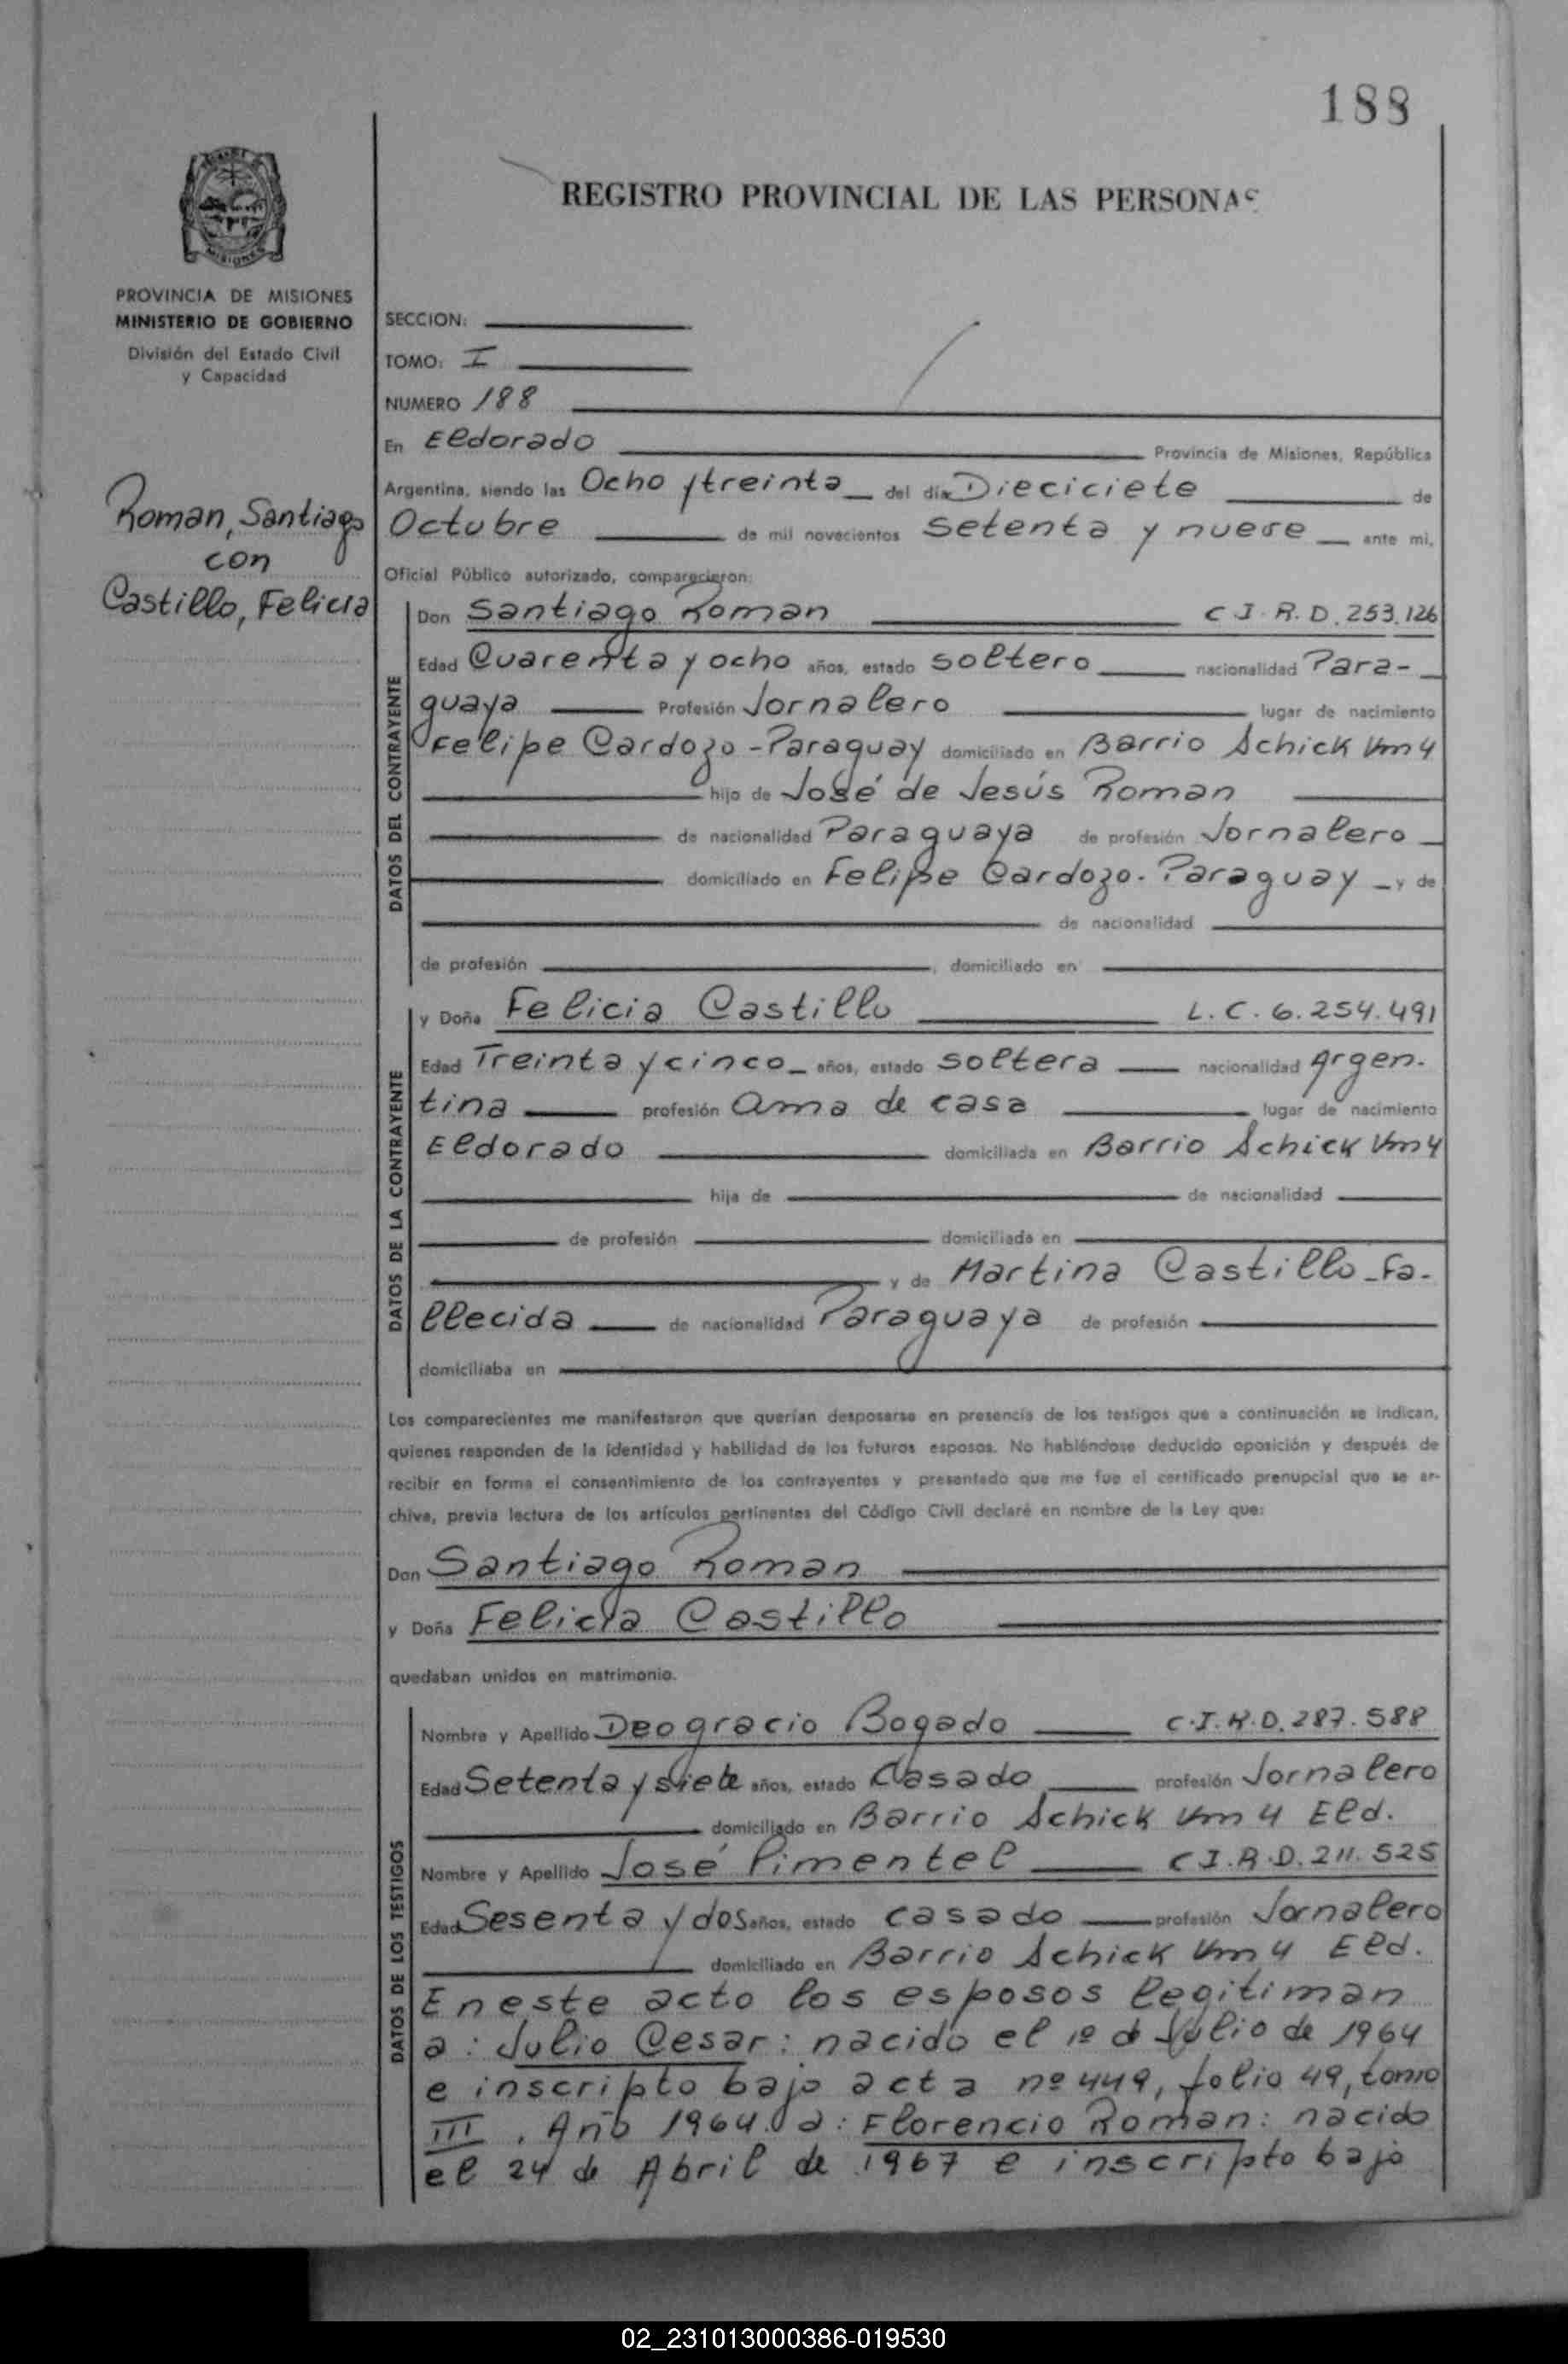 188
REGISTRO PROVINCIAL DE LAS PERSONAS
MISIONES
PROVINCIA DE MISIONES
MINISTERIO DE GOBIERNO
División del Estado Civil
y Capacidad
SECCION:
TOMO: I
NUMERO 188
En Eldorado Provincia de Misiones, República
Argentina, siendo las Ocho y treinta del día Dieciciete de
Octubre de mil novecientos setenta y nueve ante mi,
Oficial Público autorizado, comparecieron:
Roman, Santiago
con
Castillo, Felicia
DATOS DEL CONTRAYENTE
Don Santiago Roman C I. R. D. 253.126
Edad Cuarenta y ocho años, estado soltero nacionalidad Para-
guaya Profesión Jornalero lugar de nacimiento
Felipe Cardozo - Paraguay domiciliado en Barrio Schick Km 4
hijo de José de Jesús Roman
de nacionalidad Paraguaya de profesión Jornalero
domiciliado en Felipe Cardozo. Paraguay y de
de nacionalidad
de profesión , domiciliado en
DATOS DE LA CONTRAYENTE
y Doña Felicia Castillo L. C. 6.254.491
Edad Treinta y cinco años, estado soltera nacionalidad Argen-
tina profesión ama de casa lugar de nacimiento
Eldorado domiciliada en Barrio Schick Km 4
hija de de nacionalidad
de profesión domiciliada en
y de Martina Castillo - Fa-
llecida de nacionalidad Paraguaya de profesión
domiciliaba en
Los comparecientes me manifestaron que querían desposarse en presencia de los testigos que a continuación se indican,
quienes responden de la identidad y habilidad de los futuros esposos. No habiéndose deducido oposición y después de
recibir en forma el consentimiento de los contrayentes y presentado que me fue el certificado prenupcial que se ar-
chiva, previa lectura de los artículos pertinentes del Código Civil declaré en nombre de la Ley que:
Don Santiago Roman
y Doña Felicia Castillo
quedaban unidos en matrimonio.
DATOS DE LOS TESTIGOS
Nombre y Apellido Deogracio Bogado C.I.R.D. 287.588
Edad Setenta y siete años, estado Casado profesión Jornalero
domiciliado en Barrio Schick Km 4 Eld.
Nombre y Apellido José Pimentel C I.R.D. 211.525
Edad Sesenta y dos años, estado casado profesión Jornalero
domiciliado en Barrio Schick Km 4 Eld.
En este acto los esposos legitiman
a: Julio Cesar: nacido el 1º de Julio de 1964
e inscripto bajo acta nº 449, folio 49, tomo
III. Año 1964. a: Florencio Roman: nacido
el 24 de Abril de 1967 e inscripto bajo
02_231013000386-019530